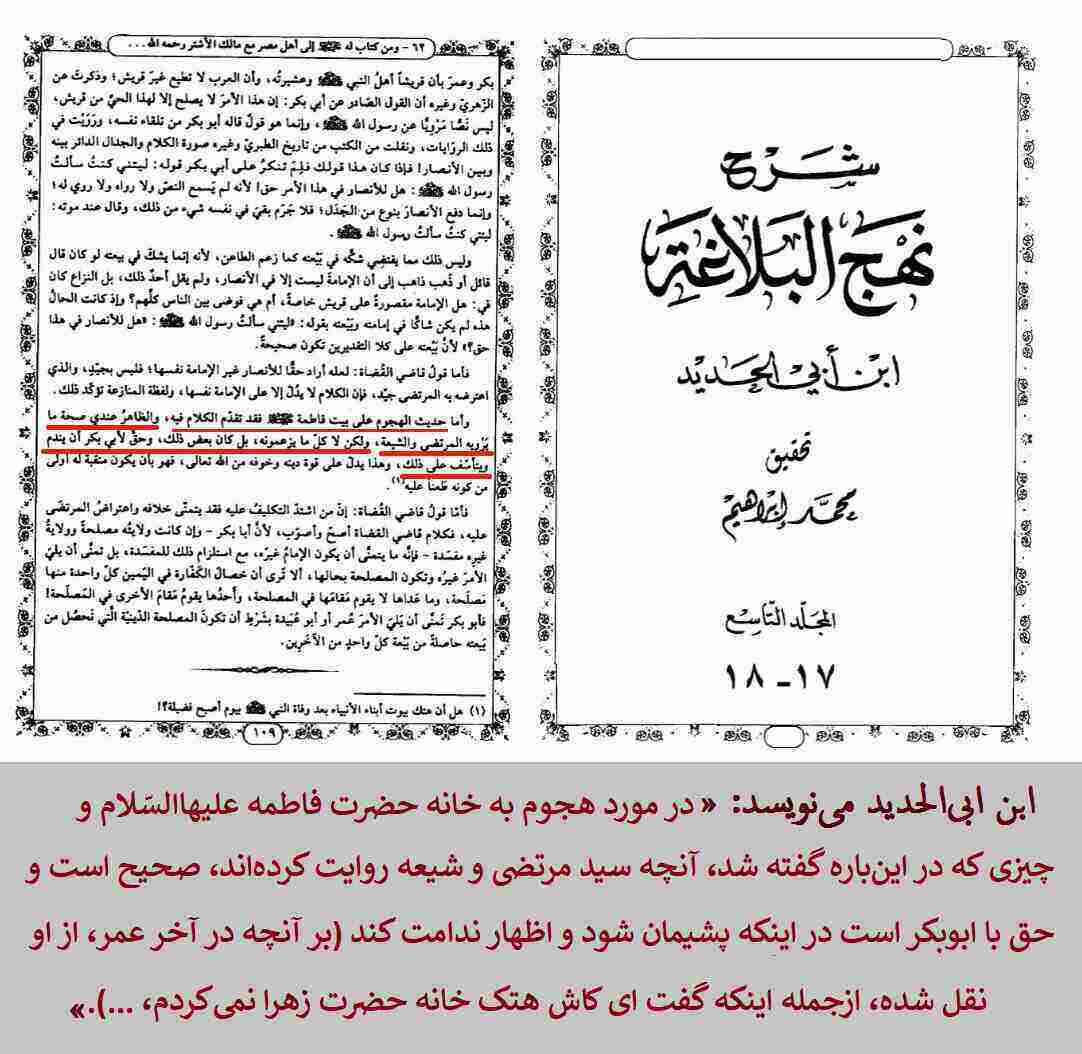 شرح
نهج البلاغة
ابن أبي الحديد
تحقيق
محمد إبراهيم
المجلد التاسع
١٧ - ١٨
٦٢ - ومن كتاب له ﷺ إلى أهل مصر مع مالك الأشتر رحمه الله . . .
بكر وعمرَ بأن قريشاً أهلُ النبي ﷺ وعشيرتُه، وأن العرب لا تطيع غيرَ قريش؛ وذكرتَ عن
الزهريّ وغيره أن القول الصّادر عن أبي بكر: إن هذا الأمرَ لا يصلح إلا لهذا الحيّ من قريش،
ليس نَصًّا مَرْوِيًّا عن رسول الله ﷺ، وإنما هو قولٌ قاله أبو بكر من تلقاء نفسه، ورَوَيْت في
ذلك الروّايات، ونقلت من الكتب من تاريخ الطبريّ وغيره صورة الكلام والجدال الدائر بينه
وبين الأنصار! فإذا كان هذا قولك فلِمَ تنكرُ على أبي بكر قوله: ليتني كنتُ سألتُ
رسول الله ﷺ: هل للأنصار في هذا الأمر حق! لأنه لم يَسمع النصّ ولا رواه ولا روي له؛
وإنما دفع الأنصارَ بنوع من الجَدَل؛ فلا جَرَم بقيَ في نفسه شيء من ذلك، وقال عند موته:
ليتني كنتُ سألتُ رسول الله ﷺ.
وليس ذلك مما يقتضِي شكَّه في بَيْعته كما زعم الطاعن، لأنه إنما يشكّ في بيعته لو كان قال
قائل أو ذَهب ذاهب إلى أن الإمامةَ ليست إلا في الأنصار، ولم يقل أحدٌ ذلك، بل النزاع كان
في: هل الإمامة مقصورةٌ على قريش خاصةً، أم هي فوضى بين الناس كلِّهم؟ وإذ كانت الحالُ
هذه لم يكن شاكًّا في إمامته وبَيْعته بقوله: «ليتني سألتُ رسول الله ﷺ: «هل للأنصار في هذا
حق؟» لأنّ بَيْعته على كلا التقديرين تكون صحيحةً.
فأما قولُ قاضي القُضاة: لعله أراد حقًّا للأنصار غير الإمامة نفسها؛ فليس بجيّد، والذي
اعترضه به المرتضى جيّد، فإن الكلام لا يدُلّ إلا على الإمامة نفسها، ولفظة المنازعة تؤكّد ذلك.
وأما حديث الهجوم على بيت فاطمة ﷺ فقد تقدّم الكلام فيه، والظاهرُ عندي صحة ما
يَرْويه المرتضى والشيعة، ولكن لا كلّ ما يزعمونه، بل كان بعض ذلك، وحقّ لأبي بكر أن يندم
ويتأسّف على ذلك، وهذا يدلّ على قوة دينه وخوفه من الله تعالى، فهو بأن يكون منقبة له أولى
من كونه طَعناً عليه(١).
فأمّا قولُ قاضي القُضاة: إنّ من اشتدّ التكليفُ عليه فقد يتمنّى خلافه واعتراضُ المرتضَى
عليه، فكلام قاضي القضاة أصحّ وأصوَب، لأنّ أبا بكر - وإن كانت ولايتُه مصلحةً وولايةُ
غيرِه مفسدة - فإنّه ما يتمنّى أن يكون الإمامُ غيرَه، مع استلزام ذلك للمفسَدة، بل تمنّى أن يليَ
الأمرَ غيرُه وتكون المصلحة بحالها، ألا تَرى أن خصالَ الكفّارة في اليَمين كلّ واحدة منها
مَصلَحة، وما عَداها لا يقوم مَقامَها في المصلحة، وأحدُها يقومُ مَقامَ الأخرى في المَصلحة!
فأبو بكر تَمنَّى أن يَلِيَ الأمرَ عُمر أو أبو عُبَيدة بشَرْطِ أن تكونَ المصلحةُ الدّينيّة الّتي تَحصُل من
بَيعته حاصلةً من بَيْعة كلّ واحدٍ من الآخَرِين.
(١) هل أن هتك بيوت أبناء الأنبياء بعد وفاة النبي ﷺ بيوم أصبح فضيلة؟!
١٠٩
ابن ابی‌الحدید می‌نویسد: « در مورد هجوم به خانه حضرت فاطمه علیهاالسّلام و
چیزی که در این‌باره گفته شد، آنچه سید مرتضی و شیعه روایت کرده‌اند، صحیح است و
حق با ابوبکر است در اینکه پشیمان شود و اظهار ندامت کند (بر آنچه در آخر عمر، از او
نقل شده، ازجمله اینکه گفت ای کاش هتک خانه حضرت زهرا نمی‌کردم، ...).»